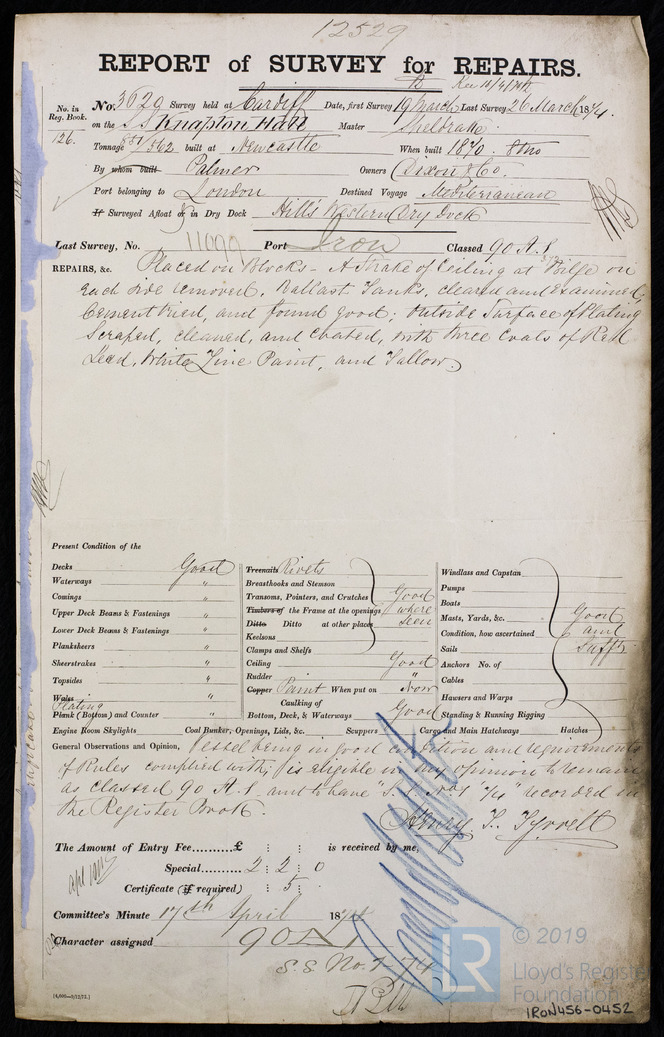 12529
REPORT of SURVEY for REPAIRS.
No. in Reg. Book. No. 3629 Survey held at Cardiff Date, first Survey 19 March Last Survey 26 March 1874.
126. on the S.S. Knapton Hall Master Sheldrake
Tonnage 851/562 built at Newcastle When built 1870. 8 mo
By whom built Palmer Owners Dixon & Co.
Port belonging to London Destined Voyage Mediterranean
If Surveyed Afloat or in Dry Dock Hill's Western Dry Dock
Last Survey, No. 11099 Port Iron Classed 90 A.1
REPAIRS, &c. Placed on Blocks - A Strake of Ceiling at Bilge on
each side removed, Ballast Tanks, cleared and examined,
Cement tried, and found good; outside Surface of Plating
Scraped, cleaned, and coated, with three Coats of Red
Lead, White Zinc Paint, and Tallow.
Present Condition of the
Decks Good
Waterways "
Comings "
Upper Deck Beams & Fastenings "
Lower Deck Beams & Fastenings "
Planksheers "
Sheerstrakes "
Topsides "
Wales "
Plating
Plank (Bottom) and Counter "
Treenails Rivets
Breasthooks and Stemson
Transoms, Pointers, and Crutches Good
Timbers of the Frame at the openings where
Ditto Ditto at other places seen
Keelsons
Clamps and Shelfs
Ceiling Good
Rudder "
Copper Paint When put on Now
Caulking of
Bottom, Deck, & Waterways Good
Windlass and Capstan
Pumps
Boats
Masts, Yards, &c. Good
Condition, how ascertained and
Sails Suff't
Anchors No. of
Cables
Hawsers and Warps
Standing & Running Rigging
Engine Room Skylights Coal Bunker, Openings, Lids, &c. Scuppers Cargo and Main Hatchways Hatches
General Observations and Opinion, Vessel being in good condition and requirements
of Rules complied with, is eligible in my opinion to remain
as classed 90 A.1 and to have S.S. No 1 "74" recorded in
the Register Book.
Henry T. Tyrrell
The Amount of Entry Fee £ : : is received by me,
Special 2 : 2 : 0
Certificate (if required) : 5 :
Committee's Minute 17th April 1874
Character assigned 90 A 1
S.S. No. 1-74
[4,000-3/12/72.]
© 2019
LR
Lloyd's Register
Foundation
IRON456-0452